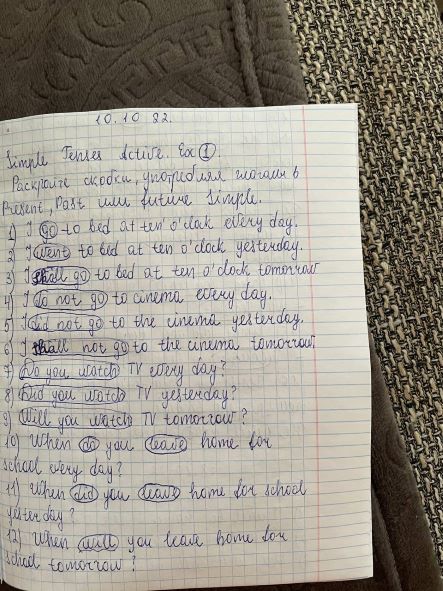 10.10 22.
Simple Tenses Active. Ex 1.
Раскройте скобки, употребляя глаголы в
Present, Past или Future Simple.
1) I go to bed at ten o'clok every day.
2) I went to bed at ten o'clock yesterday.
3) I shall go to bed at ten o'clock tomorrow
4) I do not go to cinema every day.
5) I did not go to the cinema yesterday.
6) I shall not go to the cinema tomorrow.
7) Do you watch TV every day?
8) Did you watch TV yesterday?
9) Will you watch TV tomorrow?
10) When do you leave home for
school every day?
11) When did you leave home for school
yesterday?
12) When will you leave home for
school tomorrow?